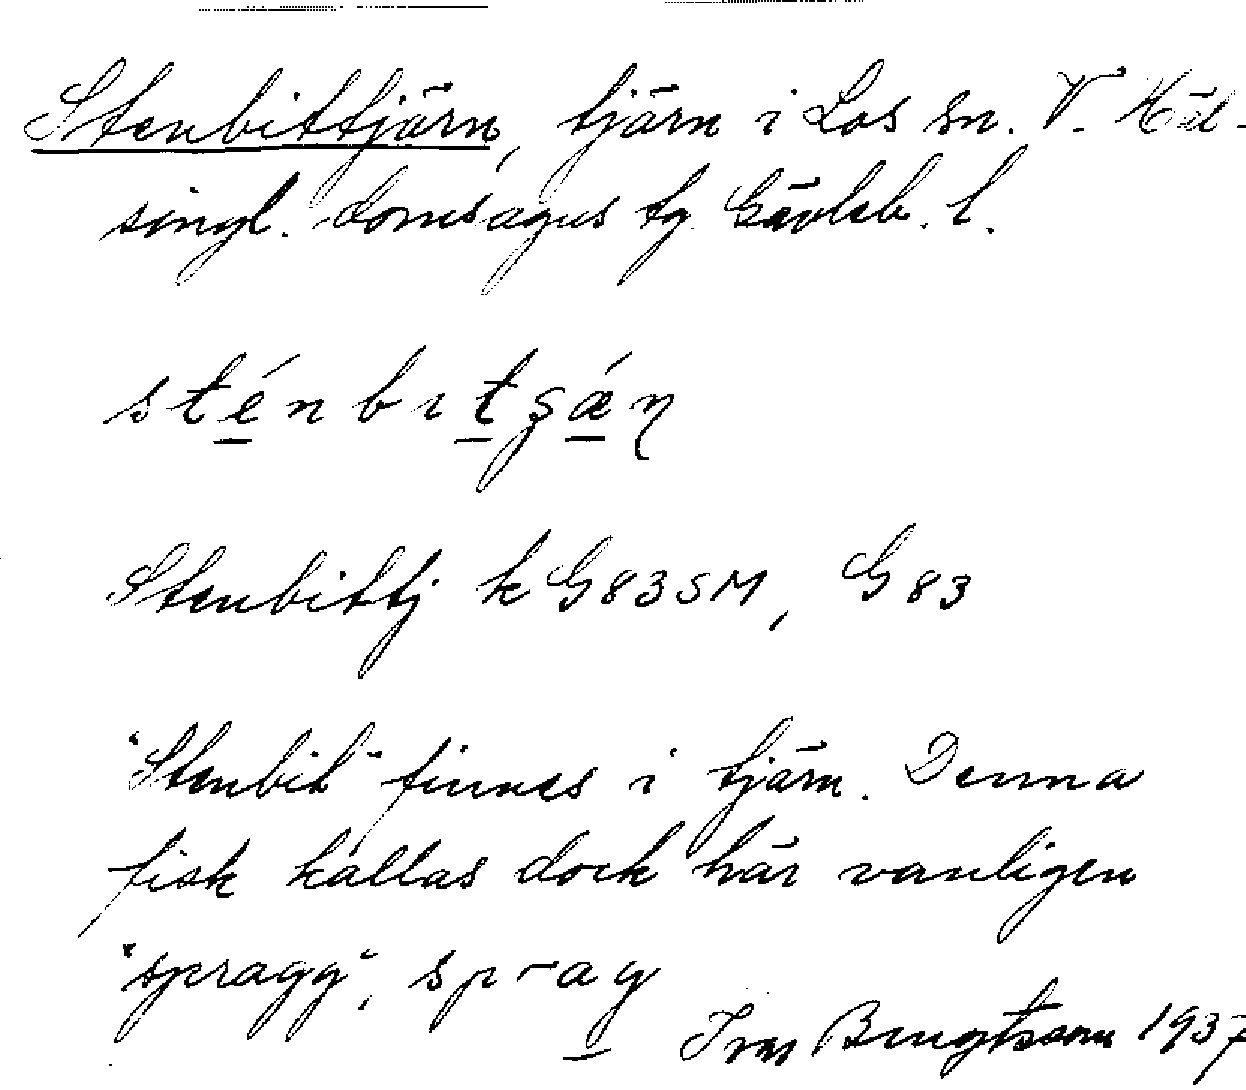 Stenbittjärn, tjärn i Los sn. V. Häl-
singl. domsagus tg. Gävleb. l.
sténbıtʂǽɳ
Stenbittj k G83SM, G83
"Stenbit" finnes i tjärn. Denna
fisk kallas dock här vanligen
"spragg", sprag
Ivar Bengtsson 1937